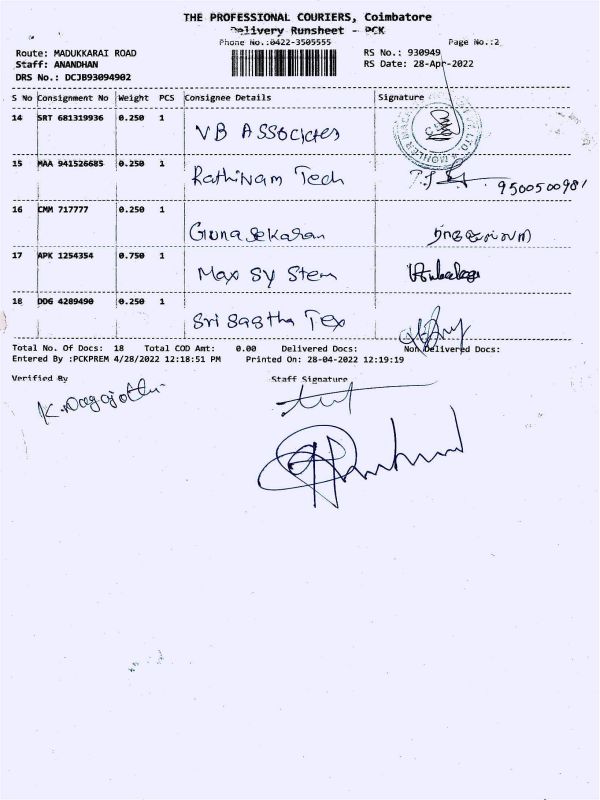 THE PROFESSIONAL COURIERS, Coimbatore
Delivery Runsheet - PCK
Phone No.:0422-3505555
Page No.:2
Route: MADUKKARAI ROAD
RS No.: 930949
Staff: ANANDHAN
RS Date: 28-Apr-2022
DRS No.: DCJB93094902
S No Consignment No Weight PCS Consignee Details Signature
14 SRT 681319936 0.250 1 VB Associates
15 MAA 941526685 0.250 1 Rathinam Tech
9500500981
16 CMM 717777 0.250 1 Gunasekaran
17 APK 1254354 0.750 1 Max System
18 DDG 4289490 0.250 1 Sri Sastha Tex
Total No. Of Docs: 18 Total COD Amt: 0.00 Delivered Docs: Non Delivered Docs:
Entered By :PCKPREM 4/28/2022 12:18:51 PM Printed On: 28-04-2022 12:19:19
Verified By Staff Signature